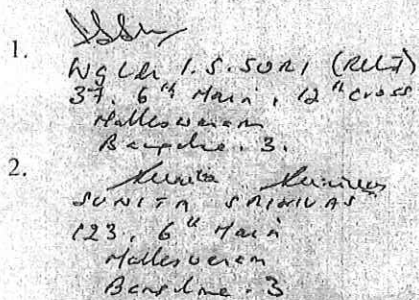 1.
Wg Cdr I.S. SURI (Retd)
37, 6th Main, 12th Cross
Malleswaram
Bangalore. 3.
2. Sunita Srinivas
SUNITA SRINIVAS
123, 6th Main
Malleswaram
Bangalore - 3